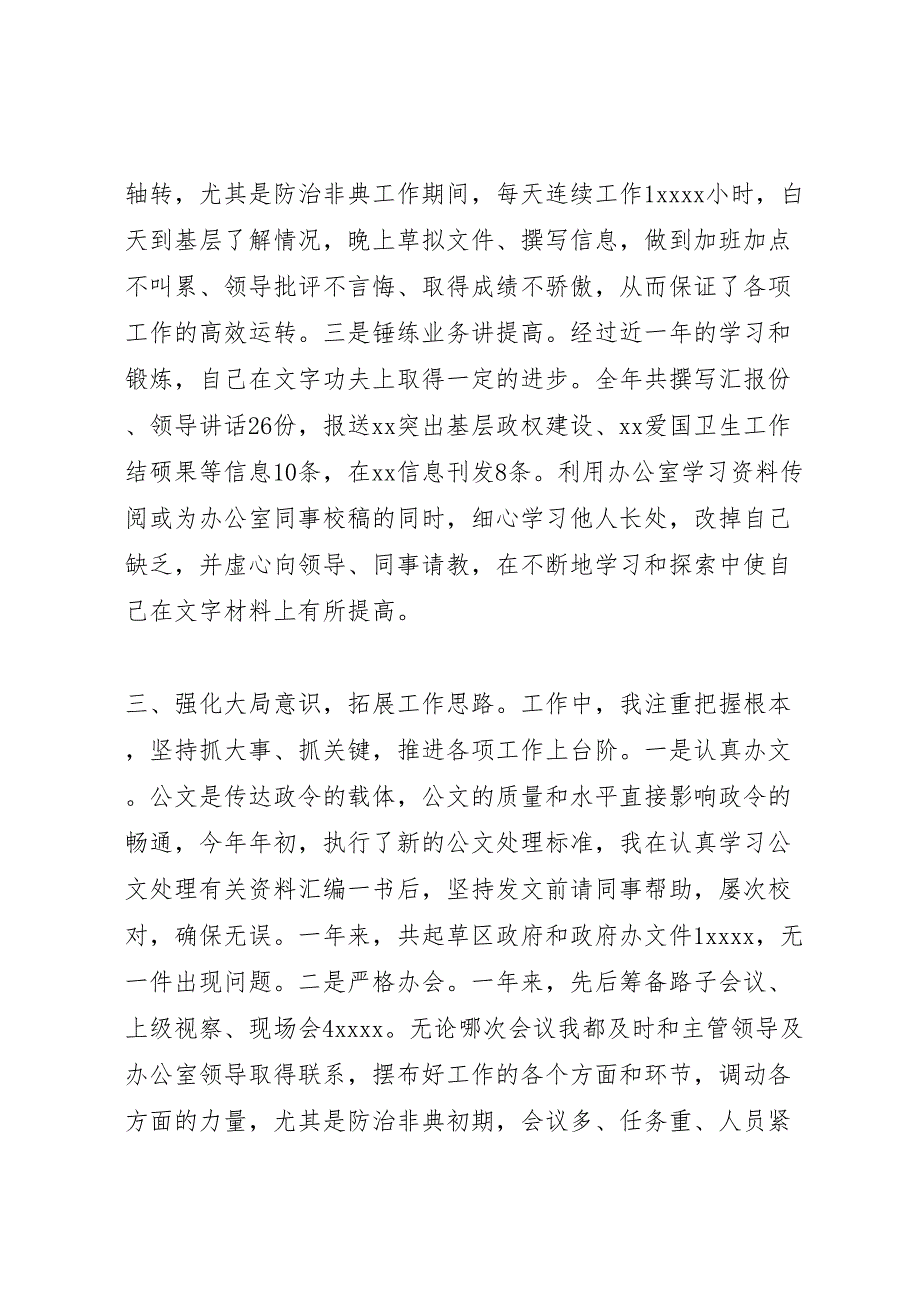 轴转，尤其是防治非典工作期间，每天连续工作1xxxx小时，白
天到基层了解情况，晚上草拟文件、撰写信息，做到加班加点
不叫累、领导批评不言悔、取得成绩不骄傲，从而保证了各项
工作的高效运转。三是锤练业务讲提高。经过近一年的学习和
锻炼，自己在文字功夫上取得一定的进步。全年共撰写汇报份
、领导讲话26份，报送xx突出基层政权建设、xx爱国卫生工作
结硕果等信息10条，在xx信息刊发8条。利用办公室学习资料传
阅或为办公室同事校稿的同时，细心学习他人长处，改掉自己
缺乏，并虚心向领导、同事请教，在不断地学习和探索中使自
己在文字材料上有所提高。
三、强化大局意识，拓展工作思路。工作中，我注重把握根本
，坚持抓大事、抓关键，推进各项工作上台阶。一是认真办文
。公文是传达政令的载体，公文的质量和水平直接影响政令的
畅通，今年年初，执行了新的公文处理标准，我在认真学习公
文处理有关资料汇编一书后，坚持发文前请同事帮助，屡次校
对，确保无误。一年来，共起草区政府和政府办文件1xxxx，无
一件出现问题。二是严格办会。一年来，先后筹备路子会议、
上级视察、现场会4xxxx。无论哪次会议我都及时和主管领导及
办公室领导取得联系，摆布好工作的各个方面和环节，调动各
方面的力量，尤其是防治非典初期，会议多、任务重、人员紧